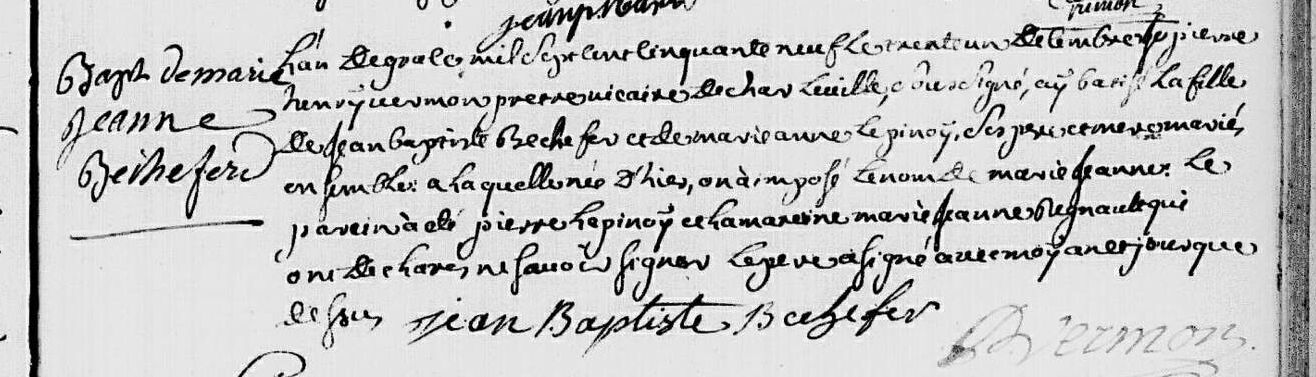 Bapt de marie
Jeanne
Bechefer
L'an de grace mil sept cent cinquante neuf le trente un decembre je pierre
henry vermon pretre vicaire de charleville, soussigné, ay batisé la fille
de Jean baptiste Bechefer et de marie anne lepinoÿ, ses pere et mere mariés
ensemble: a laquelle née d'hier, on à imposé le nom de marie Jeanne: le
parein à eté pierre lepinoÿ et la mareine marie Jeanne Regnault qui
ont declarés ne savoir signer le pere a signé avec moÿ an et jour que
dessus
Jean Baptiste Bechefer
Vermon